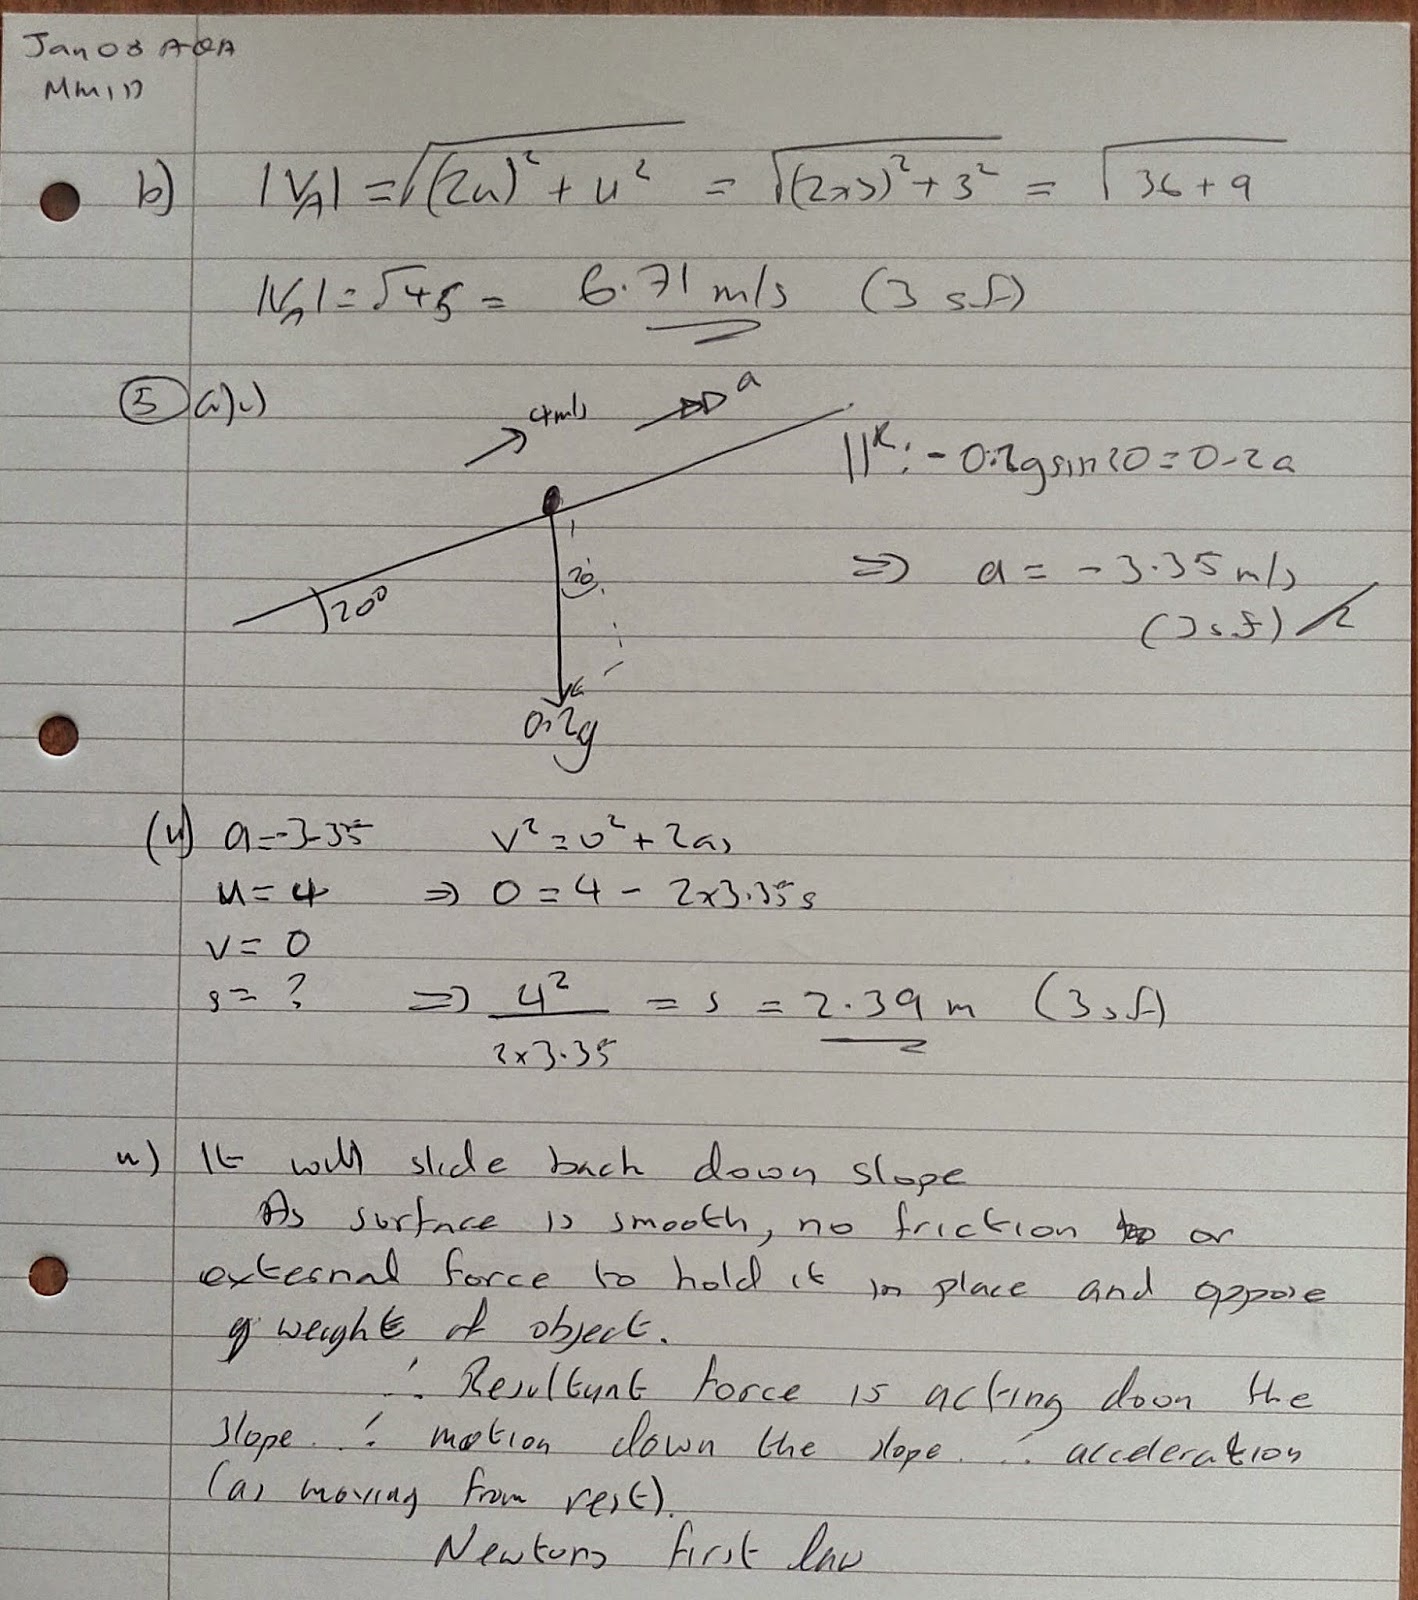 Jan 08 AQA
MM1B
b) |V_A| = √((2u)² + u²) = √((2×3)² + 3²) = √(36 + 9)
|V_A| = √45 = 6.71 m/s (3 sf)
5 a) i)
4m/s a
||ˡ: - 0.2gsin20 = 0.2a
⇒ a = - 3.35 m/s
(3sf)
20° 20
0.2g
(ii) a = -3.35 v² = u² + 2as
u = 4 ⇒ 0 = 4 - 2×3.35s
v = 0
s = ? ⇒ 4² / 2×3.35 = s = 2.39 m (3sf)
It will slide back down slope
As surface is smooth, no friction or
external force to hold it in place and oppose
weight of object.
∴ Resultant force is acting down the
slope. ∴ motion down the slope. ∴ acceleration
(as moving from rest).
Newtons first law